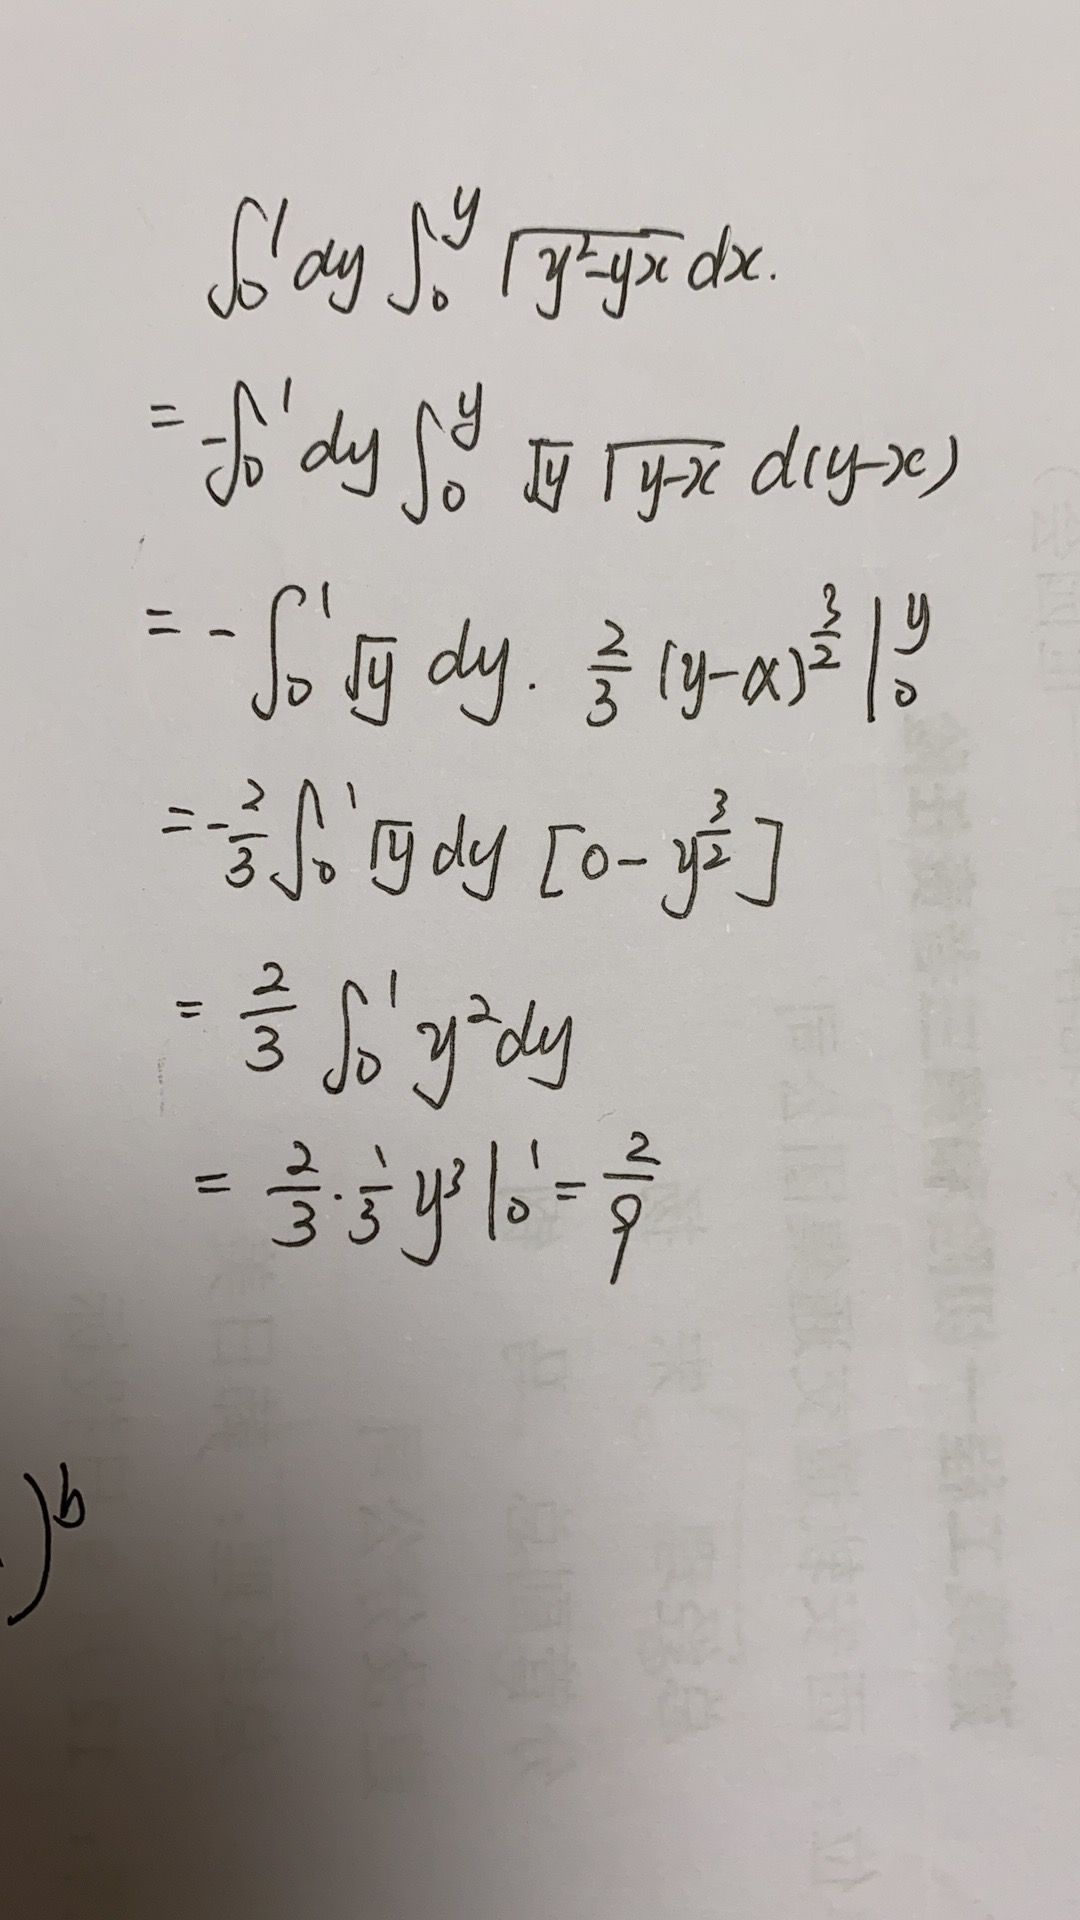 ∫₀¹ dy ∫₀^y √(y²-yx) dx.
= -∫₀¹ dy ∫₀^y √y √(y-x) d(y-x)
= - ∫₀¹ √y dy · 2/3 (y-x)^(3/2) |₀^y
= -2/3 ∫₀¹ √y dy [0 - y^(3/2)]
= 2/3 ∫₀¹ y² dy
= 2/3 · 1/3 y³ |₀¹ = 2/9
)^b